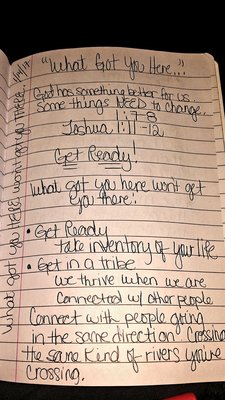 "What Got You Here..."
God has something better for us.
Some things NEED to change..
1:7-8
Joshua 1:11-12
Get Ready!
What got you here won't get
you there!
• Get Ready
take inventory of your life
• Get in a tribe
we thrive when we are
connected w/ other people
Connect with people going
in the same direction. Crossing
the same kind of rivers you're
crossing.
What got you HERE won't get you THERE.